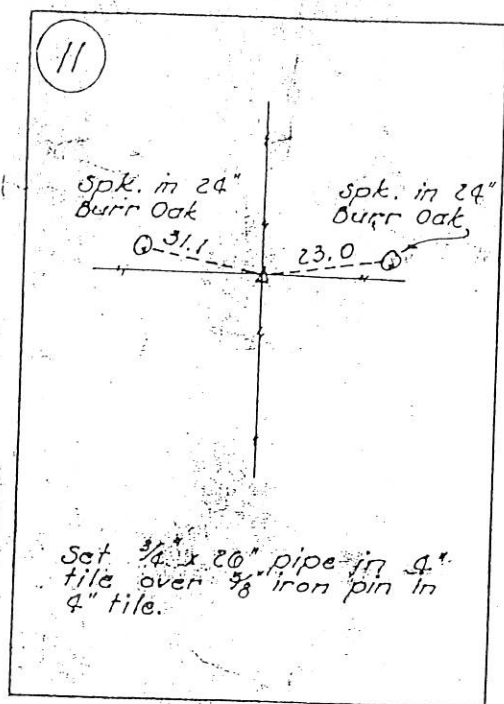 11
spk. in 24"
Burr Oak
31.1
spk. in 24"
Burr Oak
23.0
Set 3/4" x 26" pipe in 4"
tile over 5/8" iron pin in
4" tile.